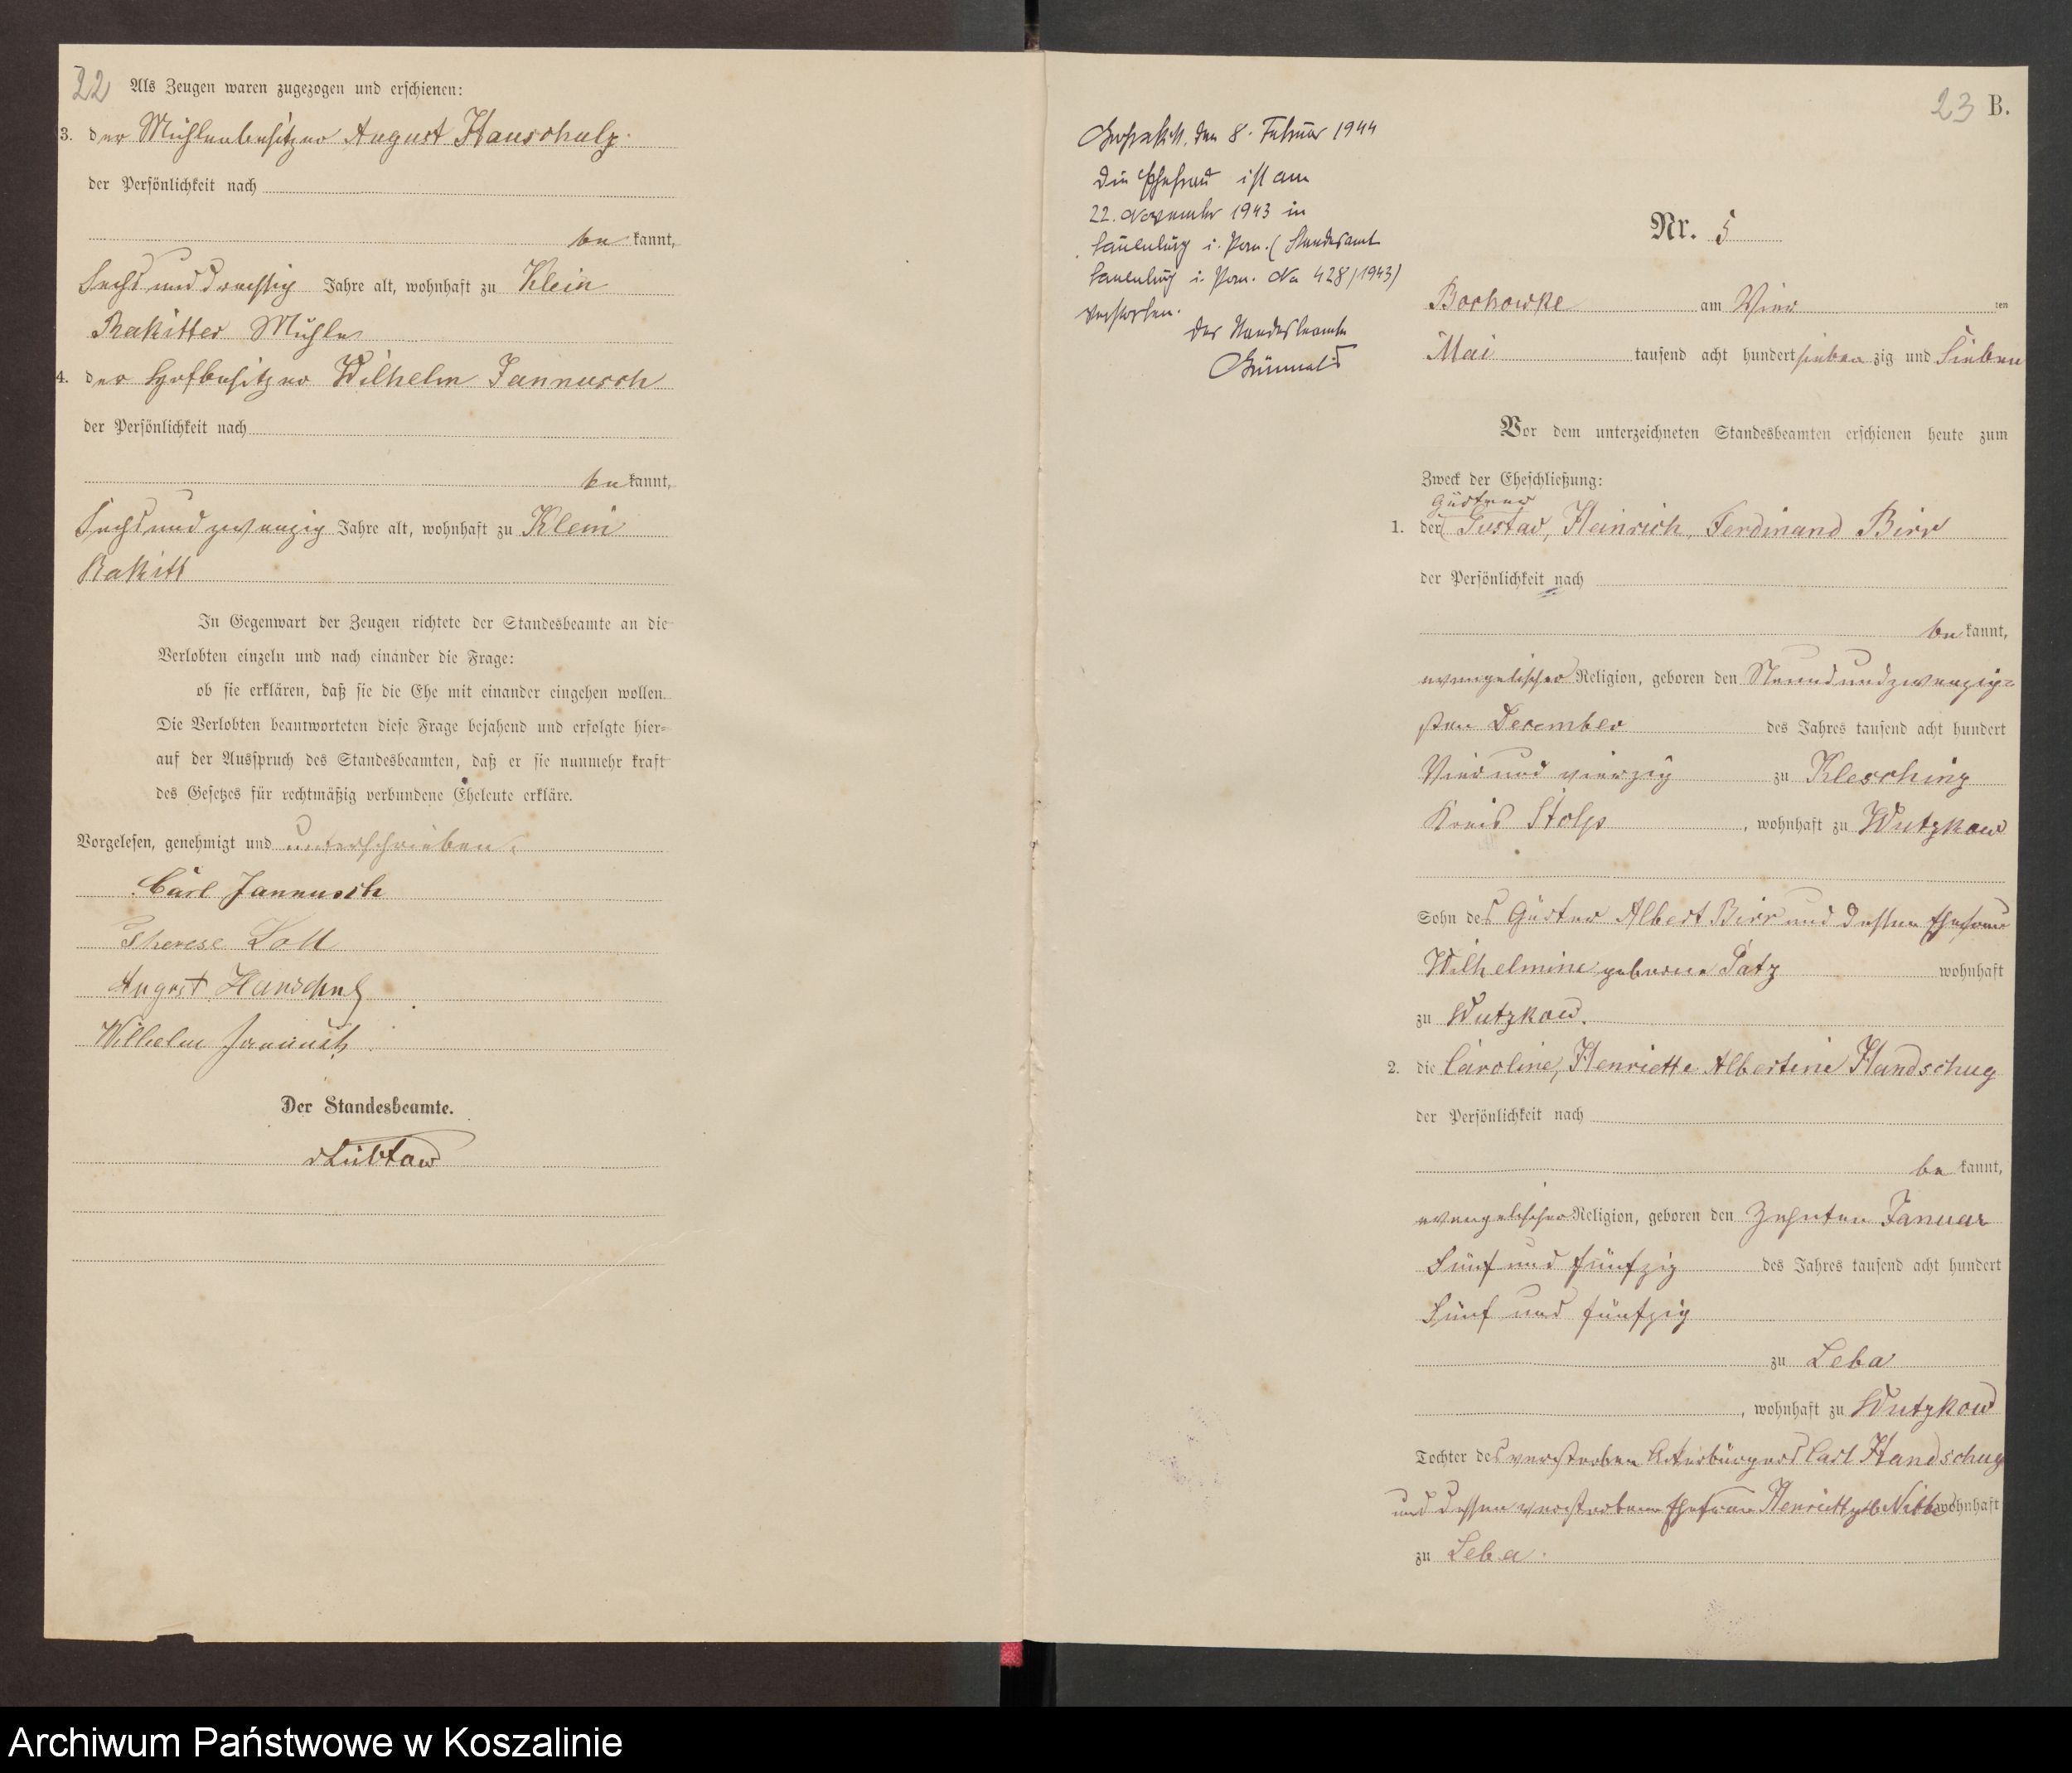 22 Als Zeugen waren zugezogen und erschienen:
3. der Mühlenbesitzer August Hauschulz
der Persönlichkeit nach
be kannt,
Sechs und dreissig Jahre alt, wohnhaft zu Klein
Rakitter Mühle
4. der Hofbesitzer Wilhelm Jannusch
der Persönlichkeit nach
be kannt,
Sechs und zwanzig Jahre alt, wohnhaft zu Klein
Rakitt
In Gegenwart der Zeugen richtete der Standesbeamte an die
Verlobten einzeln und nach einander die Frage:
ob sie erklären, daß sie die Ehe mit einander eingehen wollen.
Die Verlobten beantworteten diese Frage bejahend und erfolgte hier-
auf der Ausspruch des Standesbeamten, daß er sie nunmehr kraft
des Gesetzes für rechtmäßig verbundene Eheleute erkläre.
Vorgelesen, genehmigt und unterschrieben.
Carl Jannusch
Therese
August
Wilhelm Jannusch
Der Standesbeamte.
23 B.
den 8. Februar 1944
Die Ehefrau ist am
22. November 1943 in
Lauenburg i. Pom. (Standesamt
Lauenburg i. Pom. No 428/1943)
verstorben.
Der Standesbeamte
Nr. 5
Bochowke am Vier ten
Mai tausend acht hundert sieben zig und Sieben
Vor dem unterzeichneten Standesbeamten erschienen heute zum
Zweck der Eheschließung:
Gärtner
1. der Gustav, Heinrich, Ferdinand Birr
der Persönlichkeit nach
be kannt,
evangelischer Religion, geboren den Neunundzwanzig-
sten December des Jahres tausend acht hundert
Vier und vierzig zu Klesching
Kreis Stolp, wohnhaft zu Wutzkow
Sohn des Albert Birr und dessen Ehefrau
Wilhelmine geborne Patz wohnhaft
zu Wutzkow.
2. die Caroline, Henriette Albertine Handschug
der Persönlichkeit nach
be kannt,
evangelischer Religion, geboren den Zehnten Januar
Fünf und fünfzig des Jahres tausend acht hundert
Fünf und fünfzig
zu Leba
, wohnhaft zu Wutzkow
Tochter des verstorben Ackerbürgers Carl Handschug
und dessen verstorbene Ehefrau Henriette geb wohnhaft
zu Leba.
Archiwum Państwowe w Koszalinie